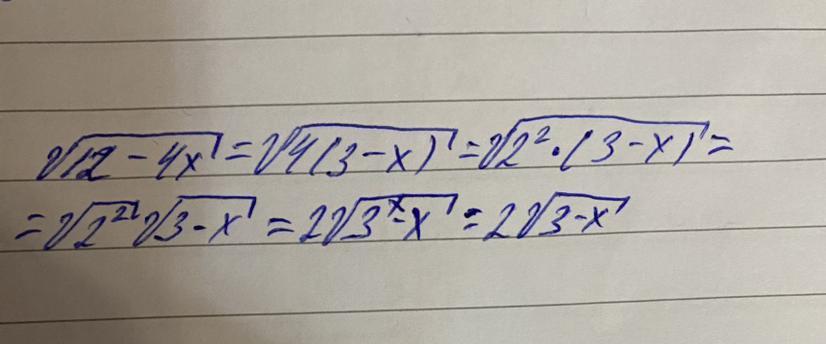 √(12 - 4x) = √(4(3 - x)) = √(2² · (3 - x)) =
= √(2²) √(3 - x) = 2√(3ˣ - x) = 2√(3 - x)